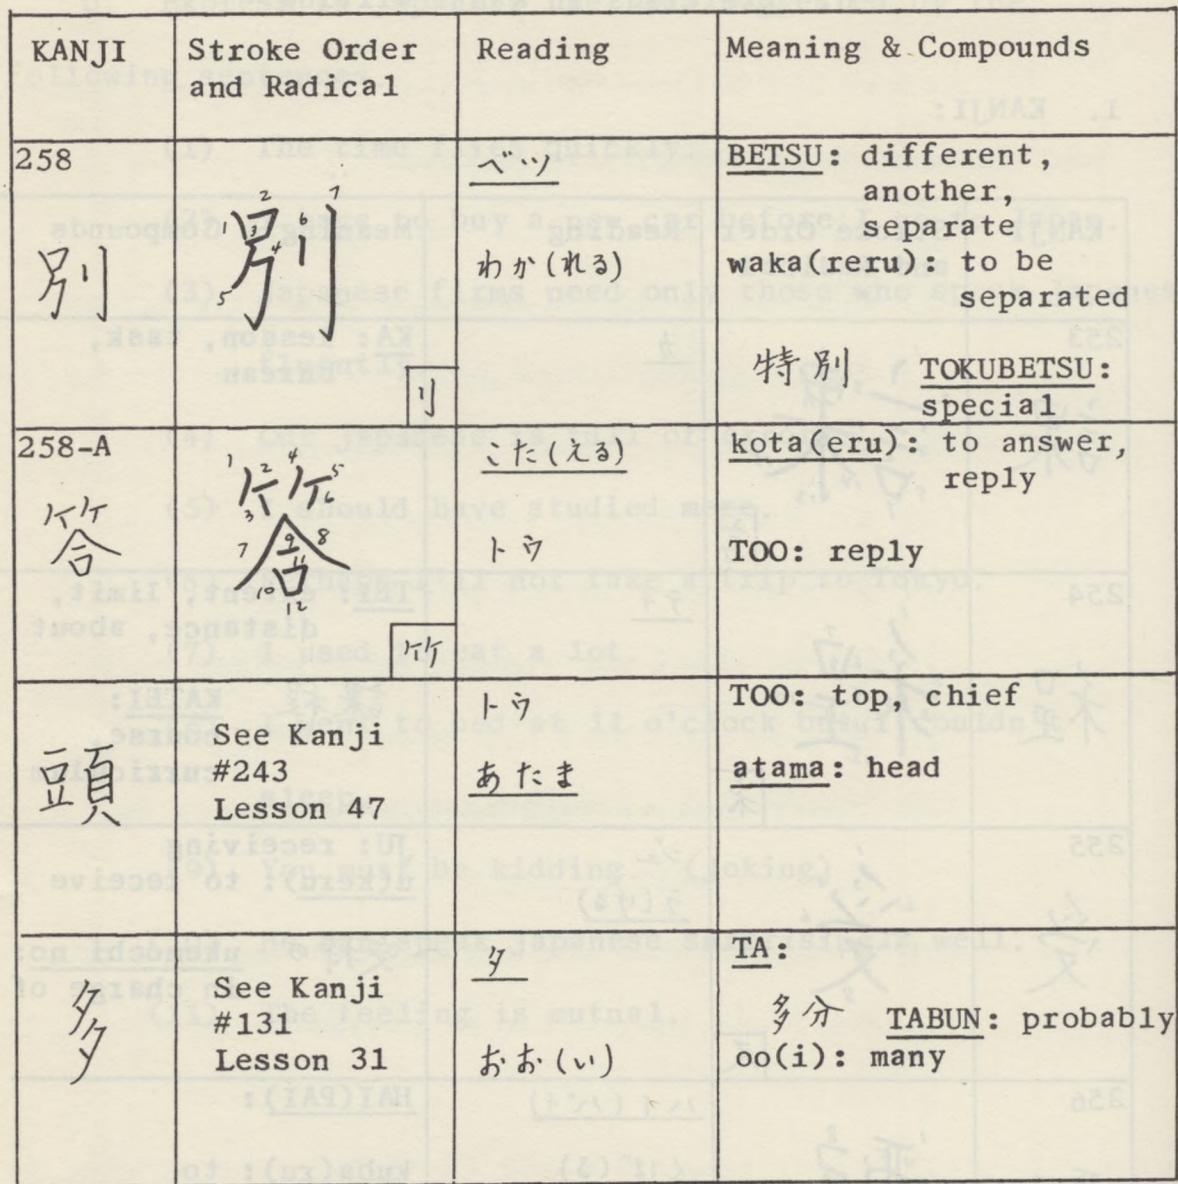 KANJI
Stroke Order
and Radical
Reading
Meaning & Compounds
258
別
1 2 3 4 5 6 7
別
刂
ベツ
わか(れる)
BETSU: different,
another,
separate
waka(reru): to be
separated
特別 TOKUBETSU:
special
258-A
答
1 2 3 4 5 6 7 8 9 10 11 12
答
竹
こた(える)
トウ
kota(eru): to answer,
reply
TOO: reply
頭
See Kanji
#243
Lesson 47
トウ
あたま
TOO: top, chief
atama: head
多
See Kanji
#131
Lesson 31
タ
おお(い)
TA:
多分 TABUN: probably
oo(i): many